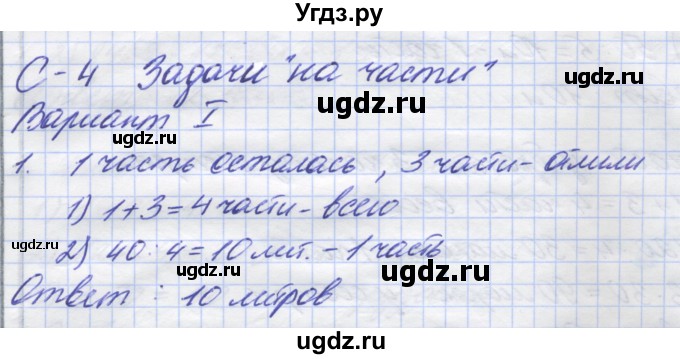 Угдз.ру
С-4 Задачи "на части"
ugdz.ru
Вариант I
ugdz.ru
1. 1 часть осталась, 3 части - отлили
1) 1+3=4 части - всего
ugdz.ru
ugdz.ru
2) 40:4=10 лит. - 1 часть
ugdz.ru
ugdz.ru
Ответ: 10 литров
ugdz.ru